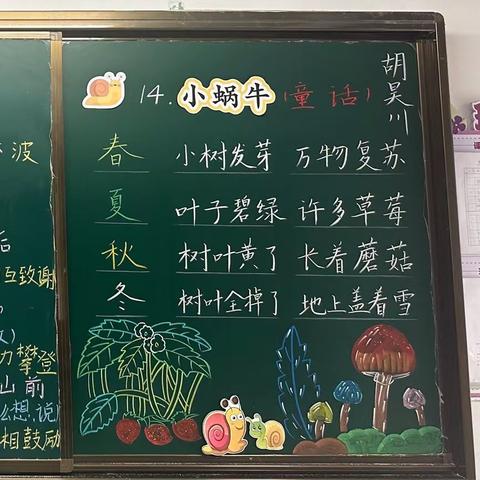 14.小蜗牛(童话)
胡昊川
春 小树发芽 万物复苏
夏 叶子碧绿 许多草莓
秋 树叶黄了 长着蘑菇
冬 树叶全掉了 地上盖着雪
波
后
互致谢
)
力攀登
山前
么想说
相鼓励